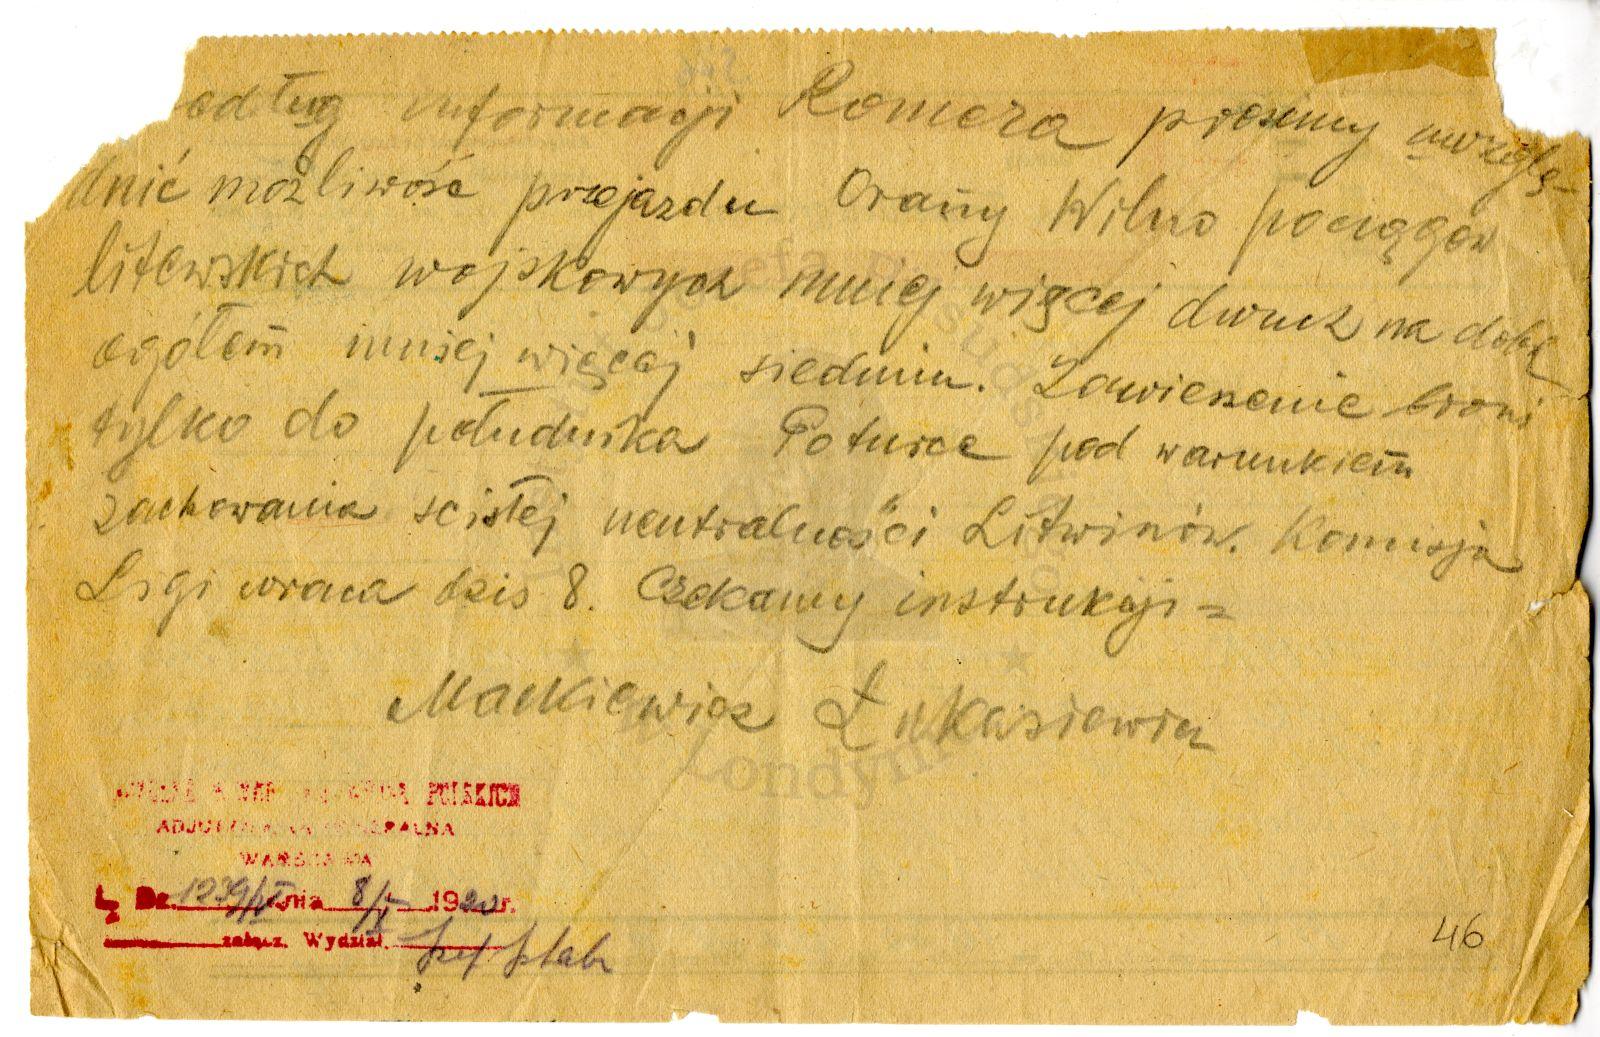 odług informacji Romera prosimy uwzglę-
dnić możliwość przejazdu Orany Wilno pociągów
litewskich wojskowych mniej więcej dwuch na dobę
ogółem mniej więcej siedmiu. Zawieszenie broni
tylko do południka Poturce pod warunkiem
zachowania scisłej neutralności Litwinów. Komisja
Ligi wraca dzis 8. Czekamy instrukcji =
Mackiewicz Łukasiewicz
POLSKICH
ADJUTANTURA GENERALNA
WARSZAWA
L. Dz. 1239/IV dnia 8/X 1920 r.
załącz. Wydział. szef sztab
46